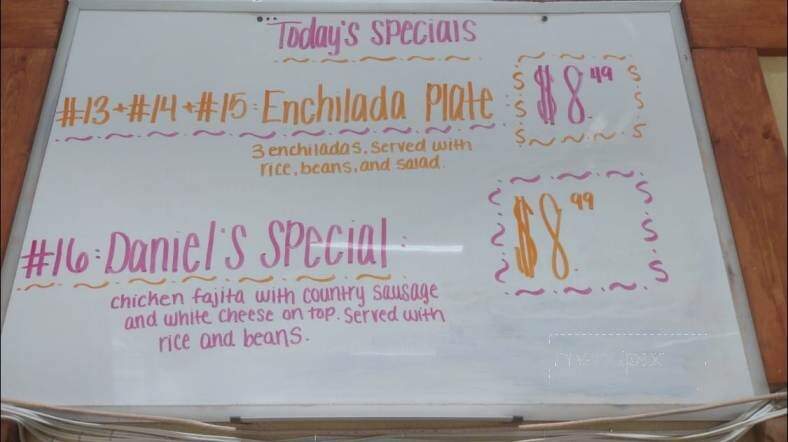 Today's Specials
#13+#14+#15: Enchilada Plate $8.49
3 enchiladas, served with
rice, beans, and salad.
#16: Daniel's Special: $8.99
chicken fajita with country sausage
and white cheese on top. Served with
rice and beans.